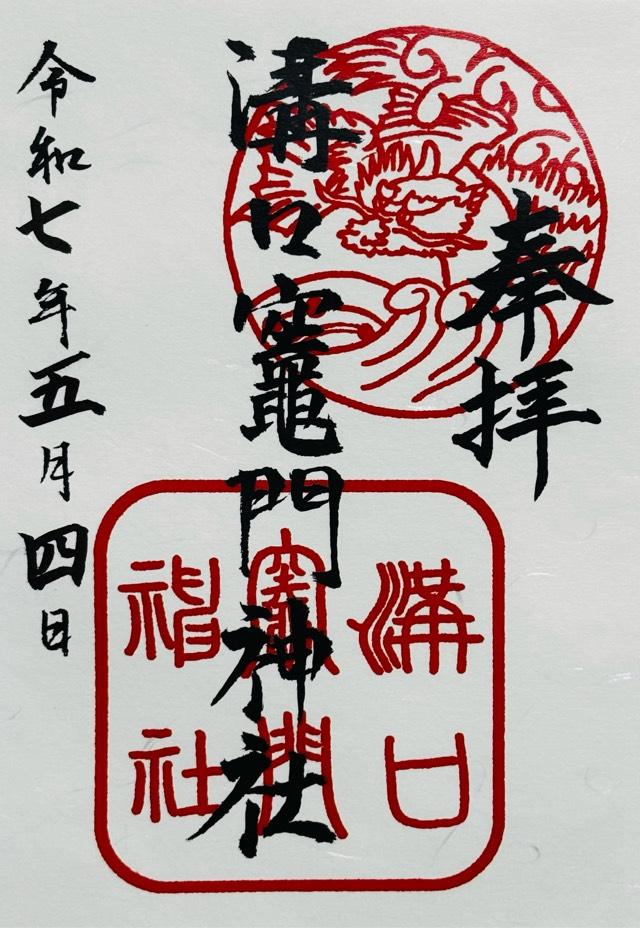 奉拝
溝口竈門神社
令和七年五月四日
溝口
竈門
神社